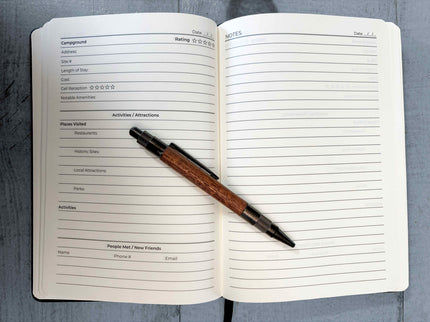 Date / /
Campground Rating ☆☆☆☆☆
Address:
Site #
Length of Stay:
Cost
Cell Reception ☆☆☆☆☆
Notable Amenities:
Activities / Attractions
Places Visited
Restaurants
Historic Sites:
Local Attractions:
Parks:
Activities
People Met / New Friends
Name Phone # Email
NOTES Date / /